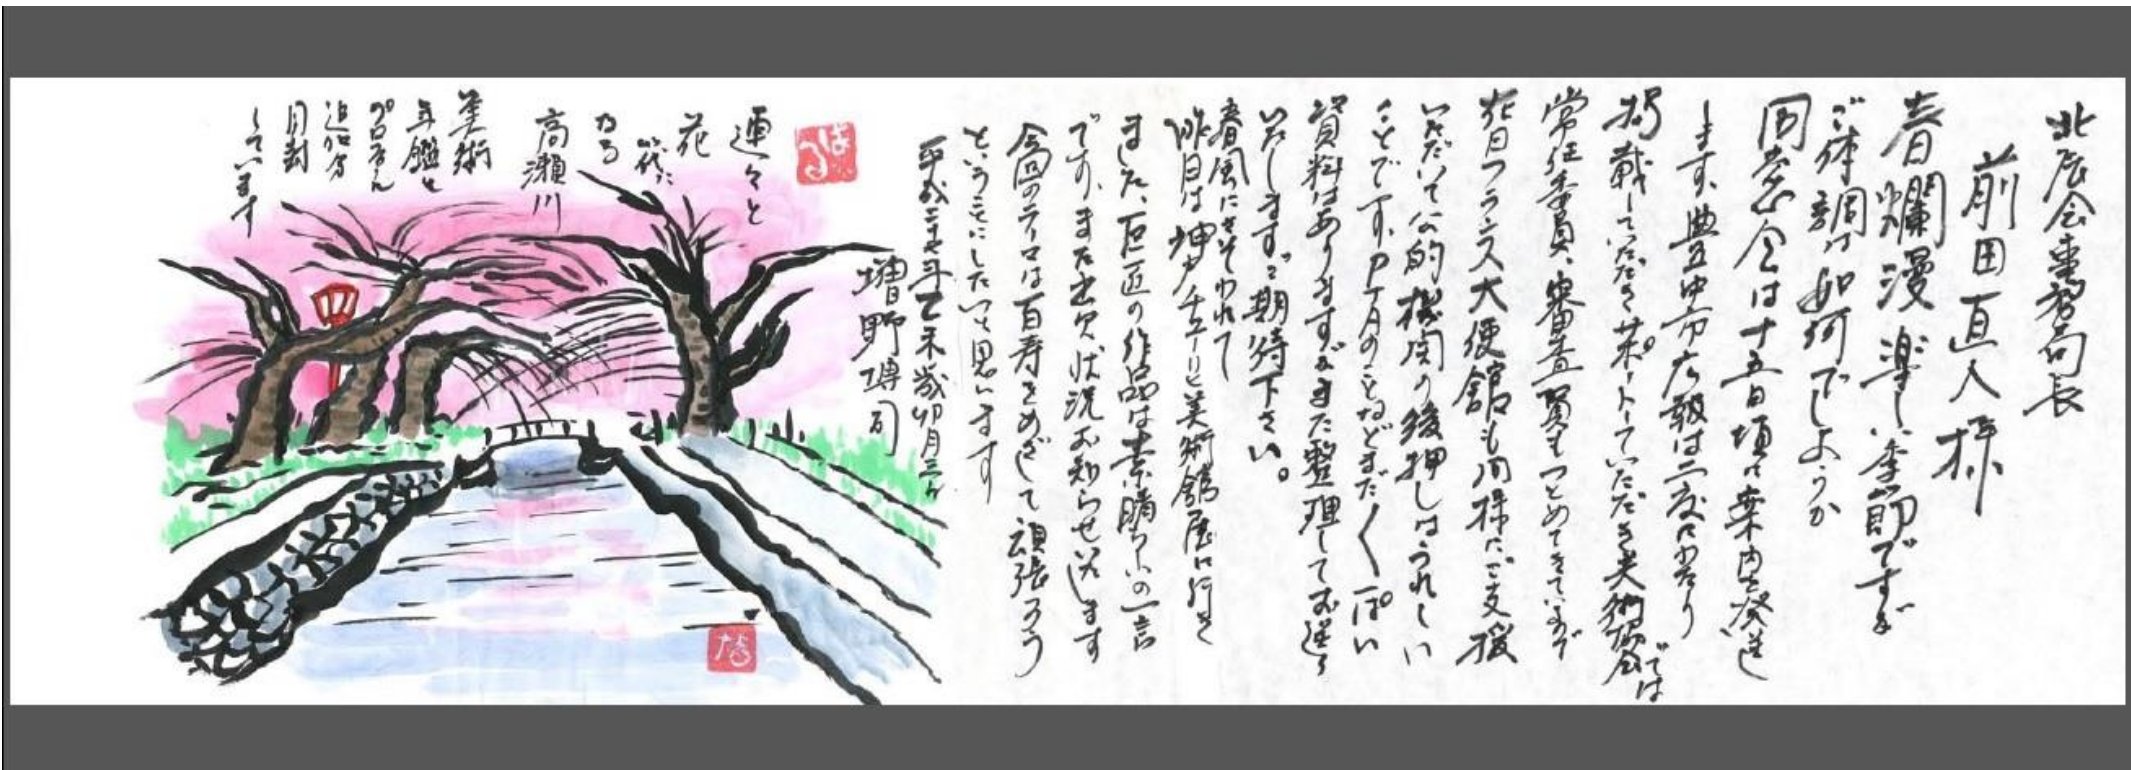 北辰会事務局長
前田直人様
春爛漫楽しい季節ですが
ご体調は如何でしょうか
同窓会は十五日頃に案内を発送
します、豊中市広報は二度にわたり
掲載していただきサポートしていただき美術協会では
常任委員、審査員もつとめてきているので
在日フランス大使館も同様にご支援
いただいて公的機関の後押しはうれしい
ことです、PTAのことなどまだ〱いっぱい
資料はありますがまた整理してお送り
いたします。ご期待下さい。
春風にさそわれて
昨日は神戸ゆかりの美術館展に行き
ました、巨匠の作品は素晴らしいの一言
です、また出欠、状況お知らせいたします
今回のテーマは百寿をめざして頑張ろう
ということにしたいと思います
平成二十七年乙未歳卯月三日
増野博司
連々と
花
筏に
なる
高瀬川
美術
年鑑を
追加分
同封
しています